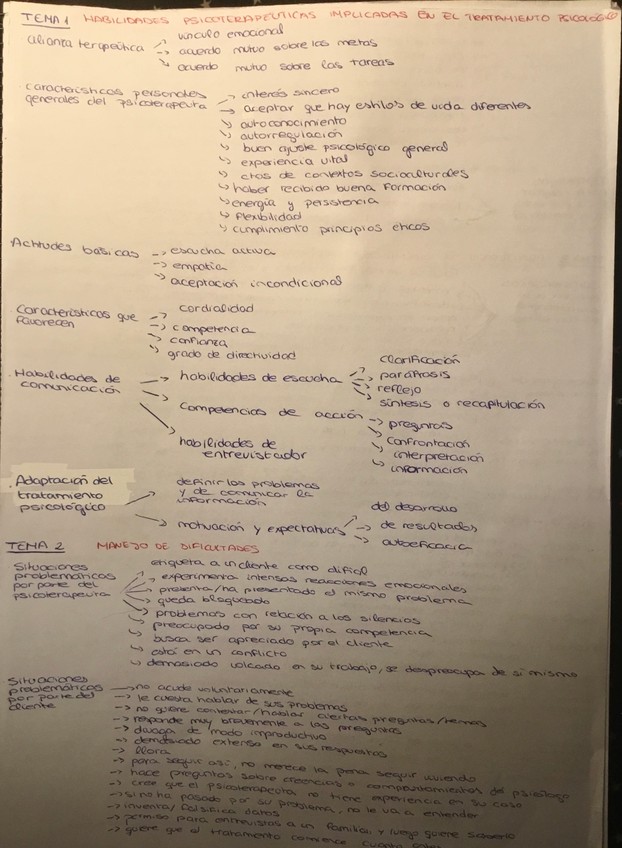 TEMA 1 HABILIDADES PSICOTERAPEUTICAS IMPLICADAS EN EL TRATAMIENTO PSICOLÓGICO
alianza terapéutica
vinculo emocional
acuerdo mutuo sobre las metas
acuerdo mutuo sobre las tareas
características personales
generales del psicoterapeuta
interés sincero
aceptar que hay estilos de vida diferentes
autoconocimiento
autorregulación
buen ajuste psicológico general
experiencia vital
ctos de contextos socioculturales
haber recibido buena formación
energía y persistencia
flexibilidad
cumplimiento principios éticos
Actitudes básicas
escucha activa
empatía
aceptación incondicional
Características que
favorecen
cordialidad
competencia
confianza
grado de directividad
Habilidades de
comunicación
habilidades de escucha
clarificación
paráfrasis
reflejo
síntesis o recapitulación
competencias de acción
preguntas
confrontación
interpretación
información
habilidades de
entrevistador
Adaptación del
tratamiento
psicológico
definir los problemas
y de comunicar la
información
motivación y expectativas
del desarrollo
de resultados
autoeficacia
TEMA 2 MANEJO DE DIFICULTADES
Situaciones
problemáticas
por parte del
psicoterapeuta
etiqueta a un cliente como difícil
experimenta intensas reacciones emocionales
presenta/ha presentado el mismo problema
queda bloqueado
problemas con relación a los silencios
preocupado por su propia competencia
busca ser apreciado por el cliente
está en un conflicto
demasiado volcado en su trabajo, se despreocupa de si mismo
Situaciones
problemáticas
por parte del
cliente
no acude voluntariamente
le cuesta hablar de sus problemas
no quiere contestar/hablar ciertas preguntas/temas
responde muy brevemente a las preguntas
divaga de modo improductivo
demasiado extenso en sus respuestas
llora
para seguir así, no merece la pena seguir viviendo
hace preguntas sobre creencias o comportamientos del psicólogo
cree que el psicoterapeuta no tiene experiencia en su caso
si no ha pasado por su problema, no le va a entender
inventa/falsifica datos
permiso para entrevistas a un familiar y luego quiere saberlo
quiere que el tratamiento comience cuanto antes